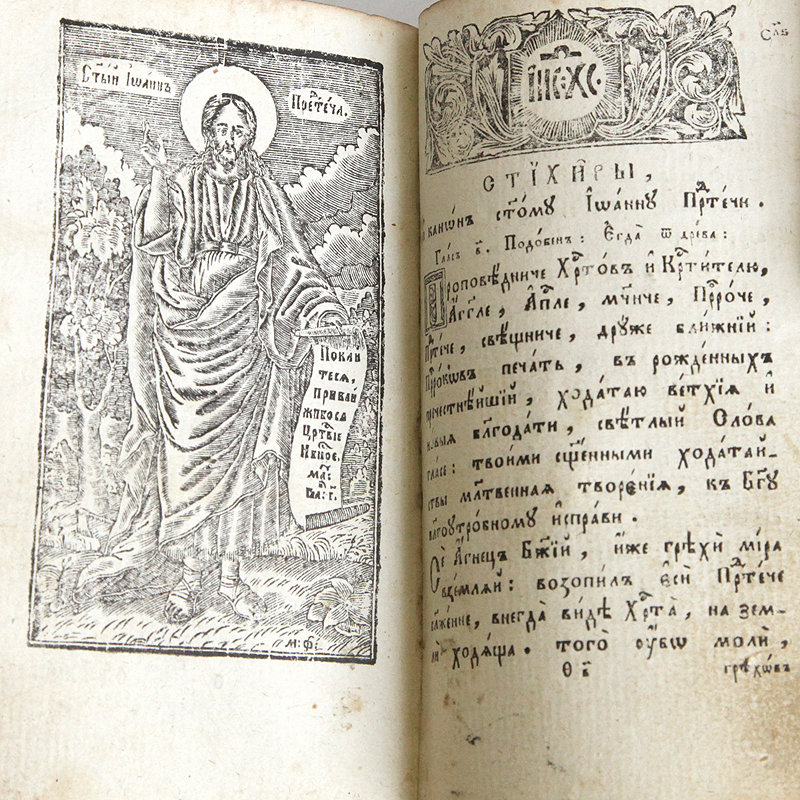 Ст҃ый Іѡаннъ
Прⷣетеча.
Покай
тесѧ,
приближи
жибосѧ
црⷭ҇твіе
нбⷭ҇ное.
м:ф:
Сл҃в
І҆И҃С ХС҃
СТІХИ̑РЫ,
и҆ канѡ́нъ ст҃о́мꙋ І҆ѡа́ннꙋ Прⷣте́чи.
Гла́съ в҃. Подо́бенъ: Є҆гда̀ ѿ дре́ва:
Проповѣ́дниче Хрⷭ҇то́въ и҆ Крⷭ҇ти́телю,
А҆́гг҃ле, А҆пⷭ҇ле, мч҃ниче, Прⷪ҇ро́че,
Прⷣте́че, свѣ́щниче, дрꙋ́же бли́жнїй:
Прⷪ҇ро́кѡвъ печа́ть, въ рожде́нныхъ
пречестнѣ́йшїй, хода́таю ве́тхїѧ и҆
но́выѧ бл҃года́ти, свѣ́тлый Сло́ва
гла́се: твои́ми сщ҃е́нными хода́тай-
ствы мл҃твеннаѧ творє́нїѧ, къ Бг҃ꙋ
бл҃гоꙋтро́бномꙋ и҆спра́ви.
Сѐ А҆́гнецъ Бж҃їй, и҆́же грѣхѝ мі́ра
взе́млѧй: возопи́лъ є҆сѝ Прⷣте́че
бл҃же́нне, внегда̀ ви́дѣ Хрⷭ҇та̀, на зем-
лѝ ходѧ́ща. того̀ ᲂу҆́бѡ молѝ,
Ѳ в҃
грѣхѡ́въ